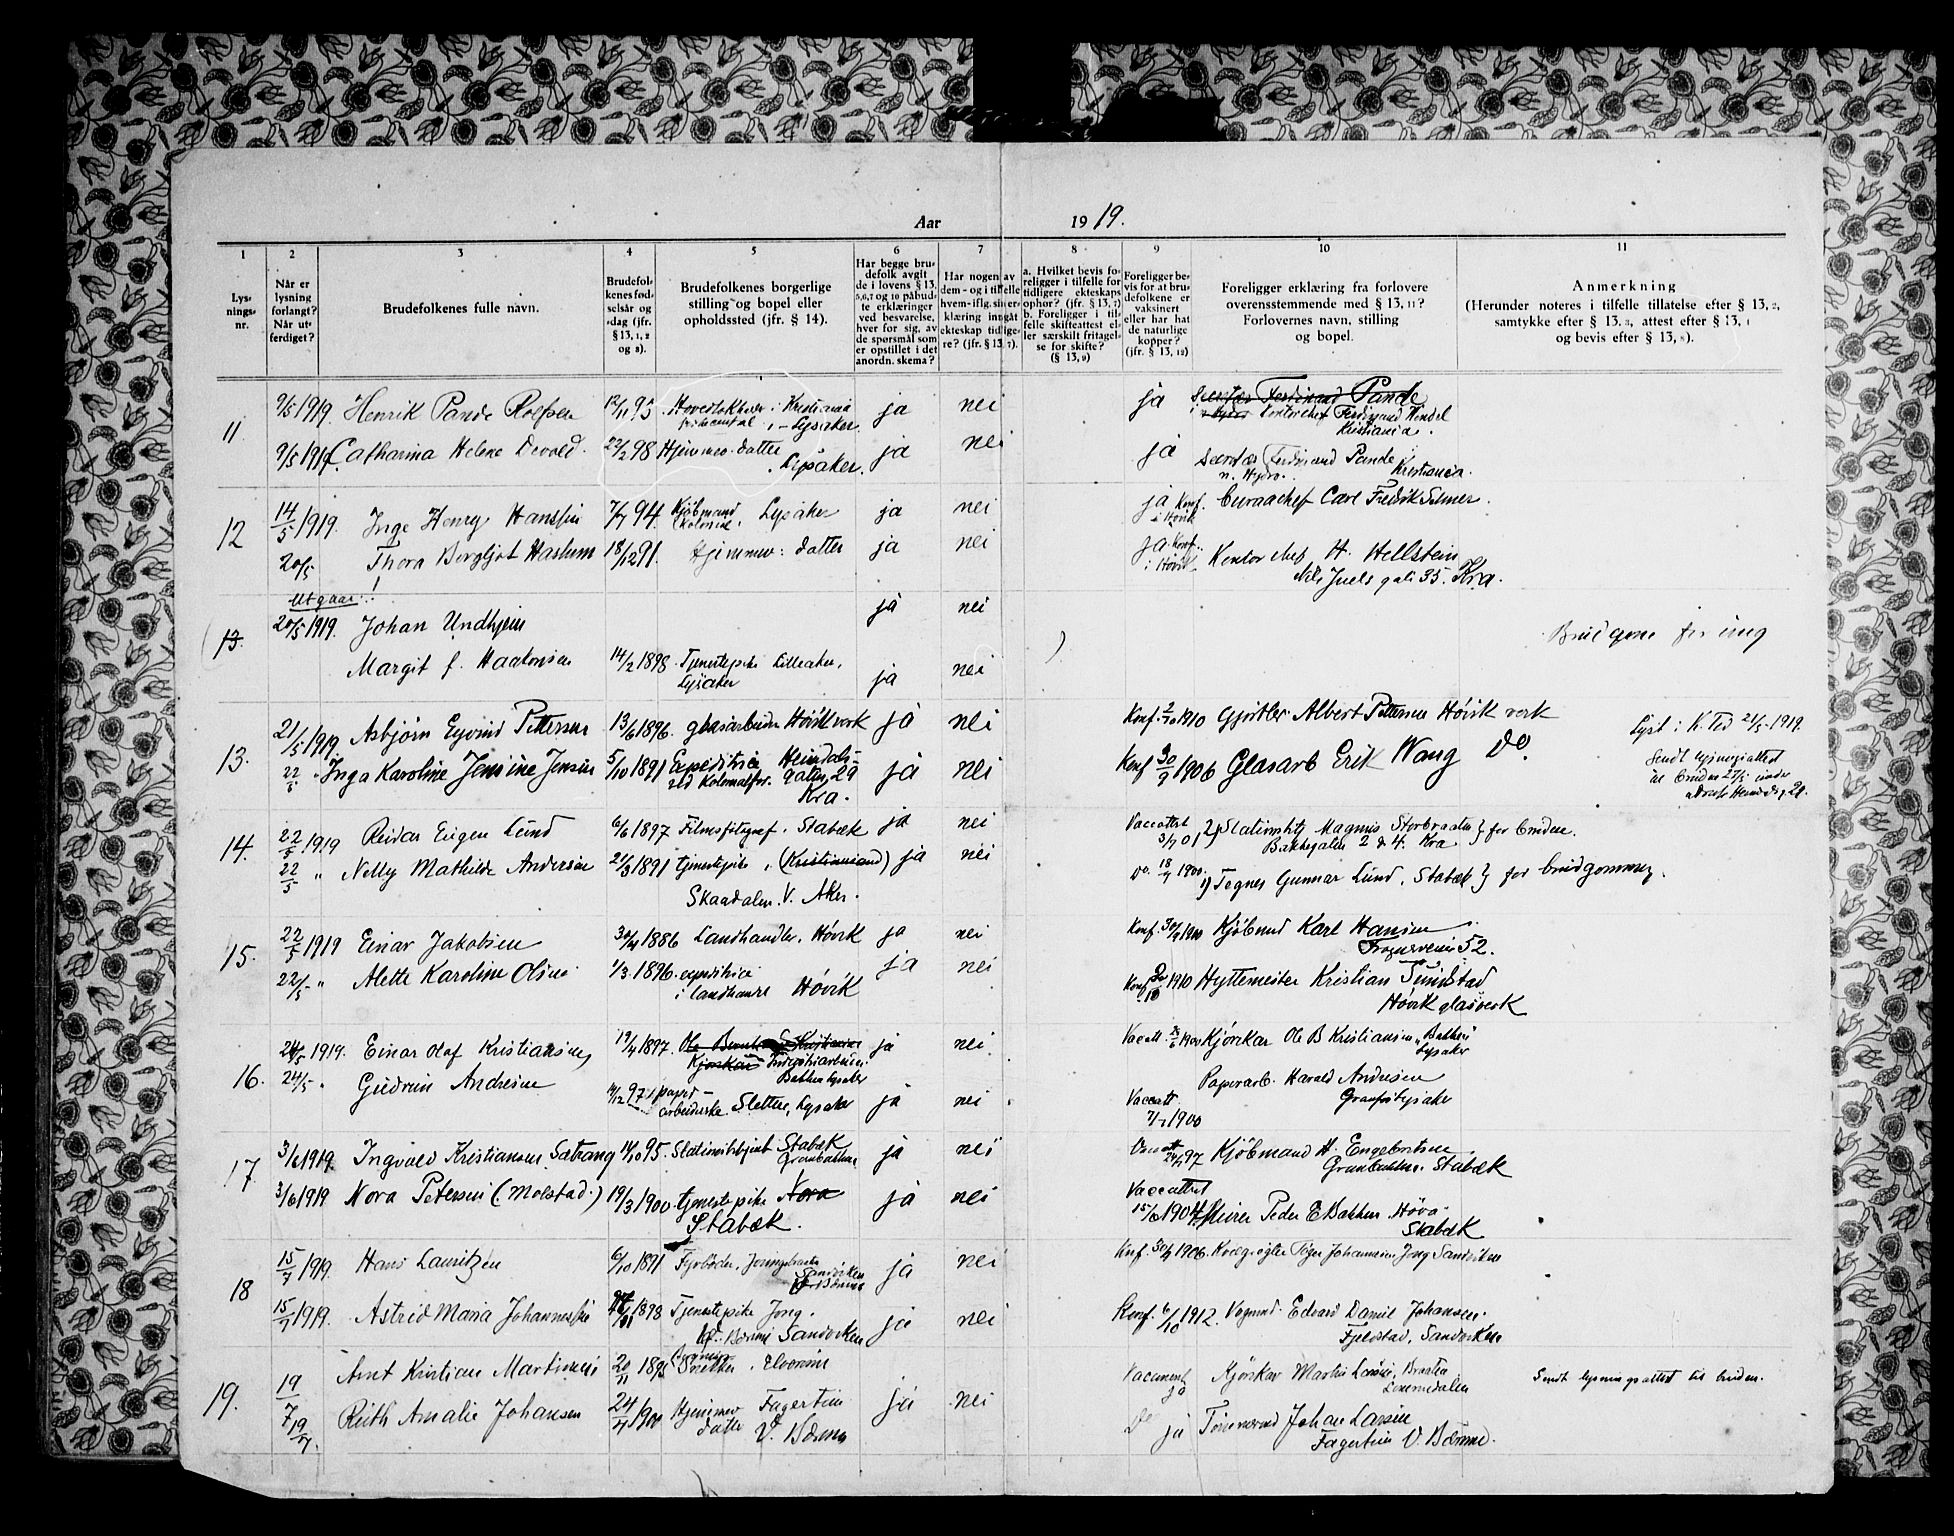 Aar 1919.
1 2 3 4 5 6 7 8 9 10 11
Lys-
nings-
nr.
Når er
lysning
forlangt?
Når ut-
ferdiget?
Brudefolkenes fulle navn.
Brudefol-
kenes fød-
selsår og
-dag (jfr.
§ 13, 1, 2
og 8).
Brudefolkenes borgerlige
stilling og bopel eller
opholdssted (jfr. § 14).
Har begge bru-
defolk avgit
de i lovens § 13,
5,6,7 og 10 påbud-
te erklæringer
ved besvarelse,
hver for sig, av
de spørsmål som
er opstillet i det
anordn. skema?
Har nogen av
dem - og i tilfelle
hvem - iflg. sin er-
klæring inngåt
ekteskap tidlige-
re? (jfr. § 13, 7).
a. Hvilket bevis fo-
religger i tilfelle for
tidligere ekteskaps
ophør? (jfr. § 13, 7)
b. Foreligger i til-
felle skifteattest el-
ler særskilt fritagel-
se for skifte?
(§ 13, 9)
Foreligger be-
vis for at bru-
defolkene er
vaksinert
eller har hat
de naturlige
kopper?
(jfr. § 13, 12)
Foreligger erklæring fra forlovere
overensstemmende med § 13, 11?
Forlovernes navn, stilling
og bopel.
Anmerkning
(Herunder noteres i tilfelle tillatelse efter § 13, 2,
samtykke efter § 13, 3, attest efter § 13, 1
og bevis efter § 13, 8).
11.
9/5 1919. Henrik Pande Rolfsen 12/11 95. i Kristiania ja nei ja Ferdinand Pande
Lysaker. Kontorchef Ferdinand
Kristiania.
9/5 1919. Catharina Helene Devold. 22/2 98 Hjemmev. datter ja nei ja Ferdinand Pande
Lysaker. n. Hydro. Kristiania.
12 14/5 1919. Inge Henry Hanssen 7/7 94. Kjøbmand Lysaker ja nei ja Konf. Carl Fredrik
i Høvik
20/5 Thora Bergljot Haslum 18/12 91. Hjemmev: datter ja nei ja Konf. Kontorchef H. Hellstein
i Høvik Nils Juels gate 35. Kra.
Utgaar!
(13. 20/5 1919. Johan Undhjem ja nei ) Brudgom for ung
Margit f. Haakonsen 14/2 1898. Tjenestepike Lilleaker, ja nei
Lysaker
13. 21/5 1919. Asbjørn Eyvind Pettersen 13/6 1896. glasarbeider Høvik verk ja nei Konf. 2/10 1910 Gjørtler Albert Pettersen Høvik verk Lyst i K. Tid 21/5-1919.
22/5 " Inga Karoline Jensine Jensen 5/10 1891 Expeditrice Heimdals- ja nei Konf 30/9 1906 Glasarb Erik Wang Do. Sendt lysningsattest
ved Kolonialfor. gaten 29 til bruden 27/5 under
Kra. adresse Heimdsg. 29.
14. 22/5 1919 Reidar Eugen Lund 6/6 1897 Filmsfotograf. Stabæk ja nei Vaccattest 2) Magnus Storbraaten } for bruden.
Bakkegaten 2 & 4. Kra
22/5 " Nelly Mathilde Andersen 21/3 1891 tjenestepike, (Kristiansand) ja nei Do. 18/7 1900. 1) Tegner Gunnar Lund, Stabæk } for brudgommen.
Skaadalen. V. Aker.
15. 22/5 1919 Einar Jakobsen 30/4 1886 Landhandler, Høvik ja nei Konf. Kjøbmd Karl Hansen
Frognerveien 52.
22/5 " Alette Karoline Olsen 1/3 1896. expeditrice ja nei Konf 2/10 1910 Hyttemester Kristian
i landhandel Høvik Høvik glasverk
16. 24/5 1919. Einar Olaf Kristiansen, 19/4 1897. Ole ja nei. Vaccatt. Kjørekar Ole B Kristiansen, Bakken
Kjørekar Industriarbeider Lysaker
Bakken Lysaker
24/5 " Gudrun Andresen 14/12 97. papir- ja nei. Papirarb. Harald Andersen
arbeiderske Sletten, Lysaker Vaccatt Granfos Lysaker
7/7 1900
17. 3/6 1919. Ingvald Kristiansen Sætrang 11/10 95. Stationsbetjent Stabæk ja nei Kjøbmand H. Engebretsen
Granbakken Granbakken, Stabæk
3/6 1919 Nora Petersen (Molstad.) 19/3 1900. tjenestepike Nora ja nei Vaccattest
Stabæk. 15/6 1904 Peder E Bakken. Høva
Stabæk
18 15/7 1919. Hans Lauritzen 6/10 1891 Fyrbøter, ja nei Konf. 30/9 1906. Jong Sandviken
Sandviken
15/7 1919. Astrid Maria Johannessen 1898 Tjenestepike Jong. ja nei Konf. 6/10 1912. Vognmd. Edvard Daniel Johansen.
V. Bærum Sandviken Fjeldstad, Sandviken
19. 19/7 Arnt Kristian Martinsen 20/11 1895 Snekker, Vaccinert Kjørekar Martin Larsen, Sendt lysningsattest til bruden.
ja Lommedalen
19/7. Ruth Amalie Johansen 24/4 1900 Hjemmev Fagertun ja nei Do ja Johan Larsen
datter V. Bærum Fagertun V Bærum.